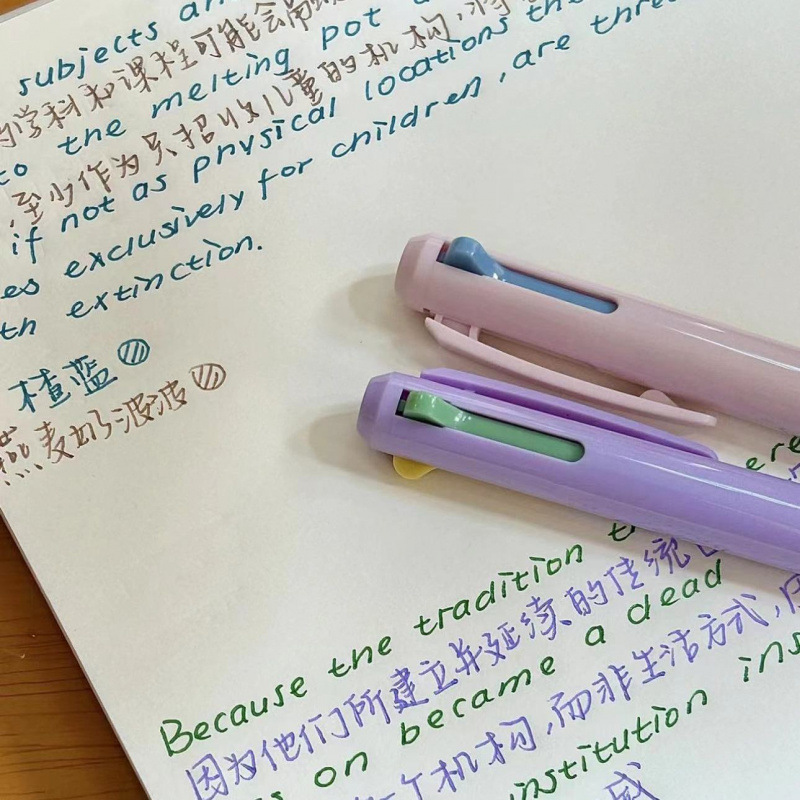 subjects an
的学科和课程可能会
to the melting pot
至少作为只招收儿童的机构,将
if not as physical locations the
es exclusively for children, are thre
th extinction.
楂蓝
燕麦奶波波
ere
Because the tradition t
因为他们所建立并延续的传统
on became a dead
个机构,而非生活方式,
institution ins
感